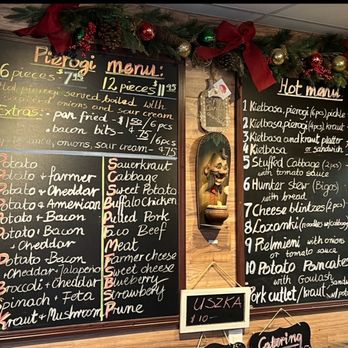 Pierogi menu:
6 pieces $7.95 12 pieces $11.95
Pierogi served boiled with
onions and sour cream
Extras: - pan fried - $1/50/6 pcs
- bacon bits - .75/6 pcs
sauce, onions, sour cream - $.75
Potato
Potato + farmer
Potato + Cheddar
Potato + American
Potato + Bacon
+ Cheddar
Potato + Bacon
+ Cheddar + Jalapeno
Broccoli + Cheddar
Spinach + Feta
Kraut + Mushroom
Sauerkraut
Cabbage
Sweet Potato
Buffalo Chicken
Pulled Pork
Taco Beef
Meat
Farmer cheese
Sweet cheese
Blueberry
Strawberry
Prune
USZKA
$10-
Hot menu
1 Kielbasa, pierogi (4pc) pickle
2 Kielbasa, pierogi (6pc) kraut
3 Kielbasa and kraut platter
4 Kielbasa sandwich
5 Stuffed Cabbage (2pc)
with tomato sauce
6 Hunter stew (Bigos)
with bread
7 Cheese blintzes (2pc)
8 Lazanki (noodles w/cabbage)
9 Pielmieni with onions
or tomato sauce
10 Potato Pancakes
with Goulash
Pork cutlet / kraut
Catering